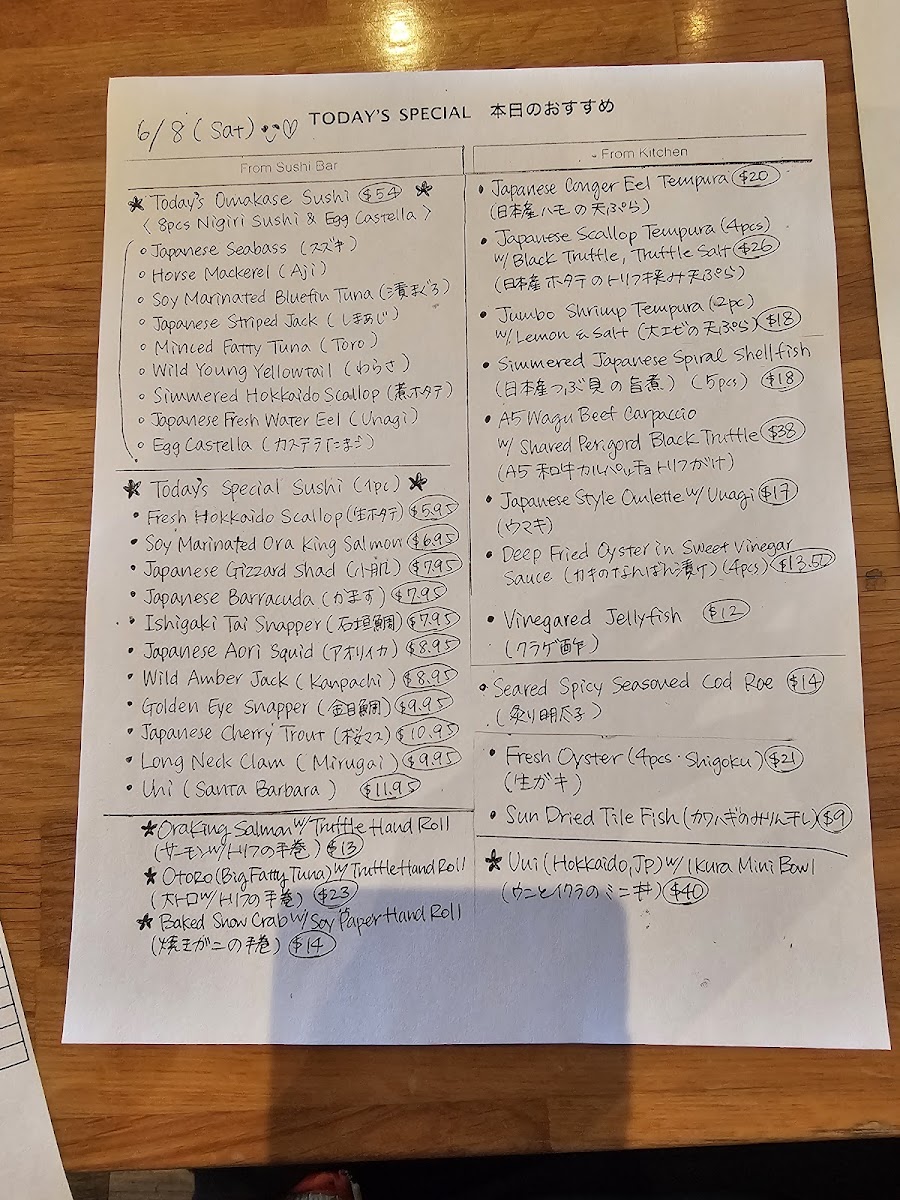 6/8 (Sat)
TODAY'S SPECIAL 本日のおすすめ
From Sushi Bar
★ Today's Omakase Sushi $54 ★
< 8pcs Nigiri Sushi & Egg Castella >
Japanese Seabass (スズキ)
Horse Mackerel (Aji)
Soy Marinated Bluefin Tuna (漬まぐろ)
Japanese Striped Jack (しまあじ)
Minced Fatty Tuna (Toro)
Wild Young Yellowtail (わらさ)
Simmered Hokkaido Scallop (煮ホタテ)
Japanese Fresh Water Eel (Unagi)
Egg Castella (カステラたまご)
★ Today's Special Sushi (1pc) ★
• Fresh Hokkaido Scallop (生ホタテ) $5.95
• Soy Marinated Ora King Salmon $6.95
• Japanese Gizzard Shad (小肌) $7.95
• Japanese Barracuda (かます) $7.95
• Ishigaki Tai Snapper (石垣鯛) $7.95
• Japanese Aori Squid (アオリイカ) $8.95
• Wild Amber Jack (Kanpachi) $8.95
• Golden Eye Snapper (金目鯛) $9.95
• Japanese Cherry Trout (桜マス) $10.95
• Long Neck Clam (Mirugai) $9.95
• Uni (Santa Barbara) $11.95
★ Ora King Salmon w/ Truffle Hand Roll
(サーモンw/トリフの手巻) $13
★ Otoro (Big Fatty Tuna) w/ Truffle Hand Roll
(大トロw/トリフの手巻) $23
★ Baked Snow Crab w/ Soy Paper Hand Roll
(焼ズワイガニの手巻) $14
From Kitchen
• Japanese Conger Eel Tempura $20
(日本産ハモの天ぷら)
• Japanese Scallop Tempura (4pcs)
w/ Black Truffle, Truffle Salt $26
(日本産ホタテのトリフ挟み天ぷら)
• Jumbo Shrimp Tempura (2pc)
w/ Lemon & Salt (大エビの天ぷら) $18
• Simmered Japanese Spiral Shellfish
(日本産つぶ貝の旨煮) (5pcs) $18
• A5 Wagu Beef Carpaccio
w/ Shared Perigord Black Truffle $38
(A5 和牛カルパッチョトリフがけ)
• Japanese Style Omlette w/ Unagi $17
(ウマキ)
• Deep Fried Oyster in Sweet Vinegar
Sauce (カキのなんばん漬け) (4pcs) $13.50
• Vinegared Jellyfish $12
(クラゲ酢)
• Seared Spicy Seasoned Cod Roe $14
(炙り明太子)
• Fresh Oyster (4pcs・Shigoku) $21
(生ガキ)
• Sun Dried Tile Fish (カワハギのみりん干し) $9
★ Uni (Hokkaido, JP) w/ Ikura Mini Bowl
(ウニとイクラのミニ丼) $40